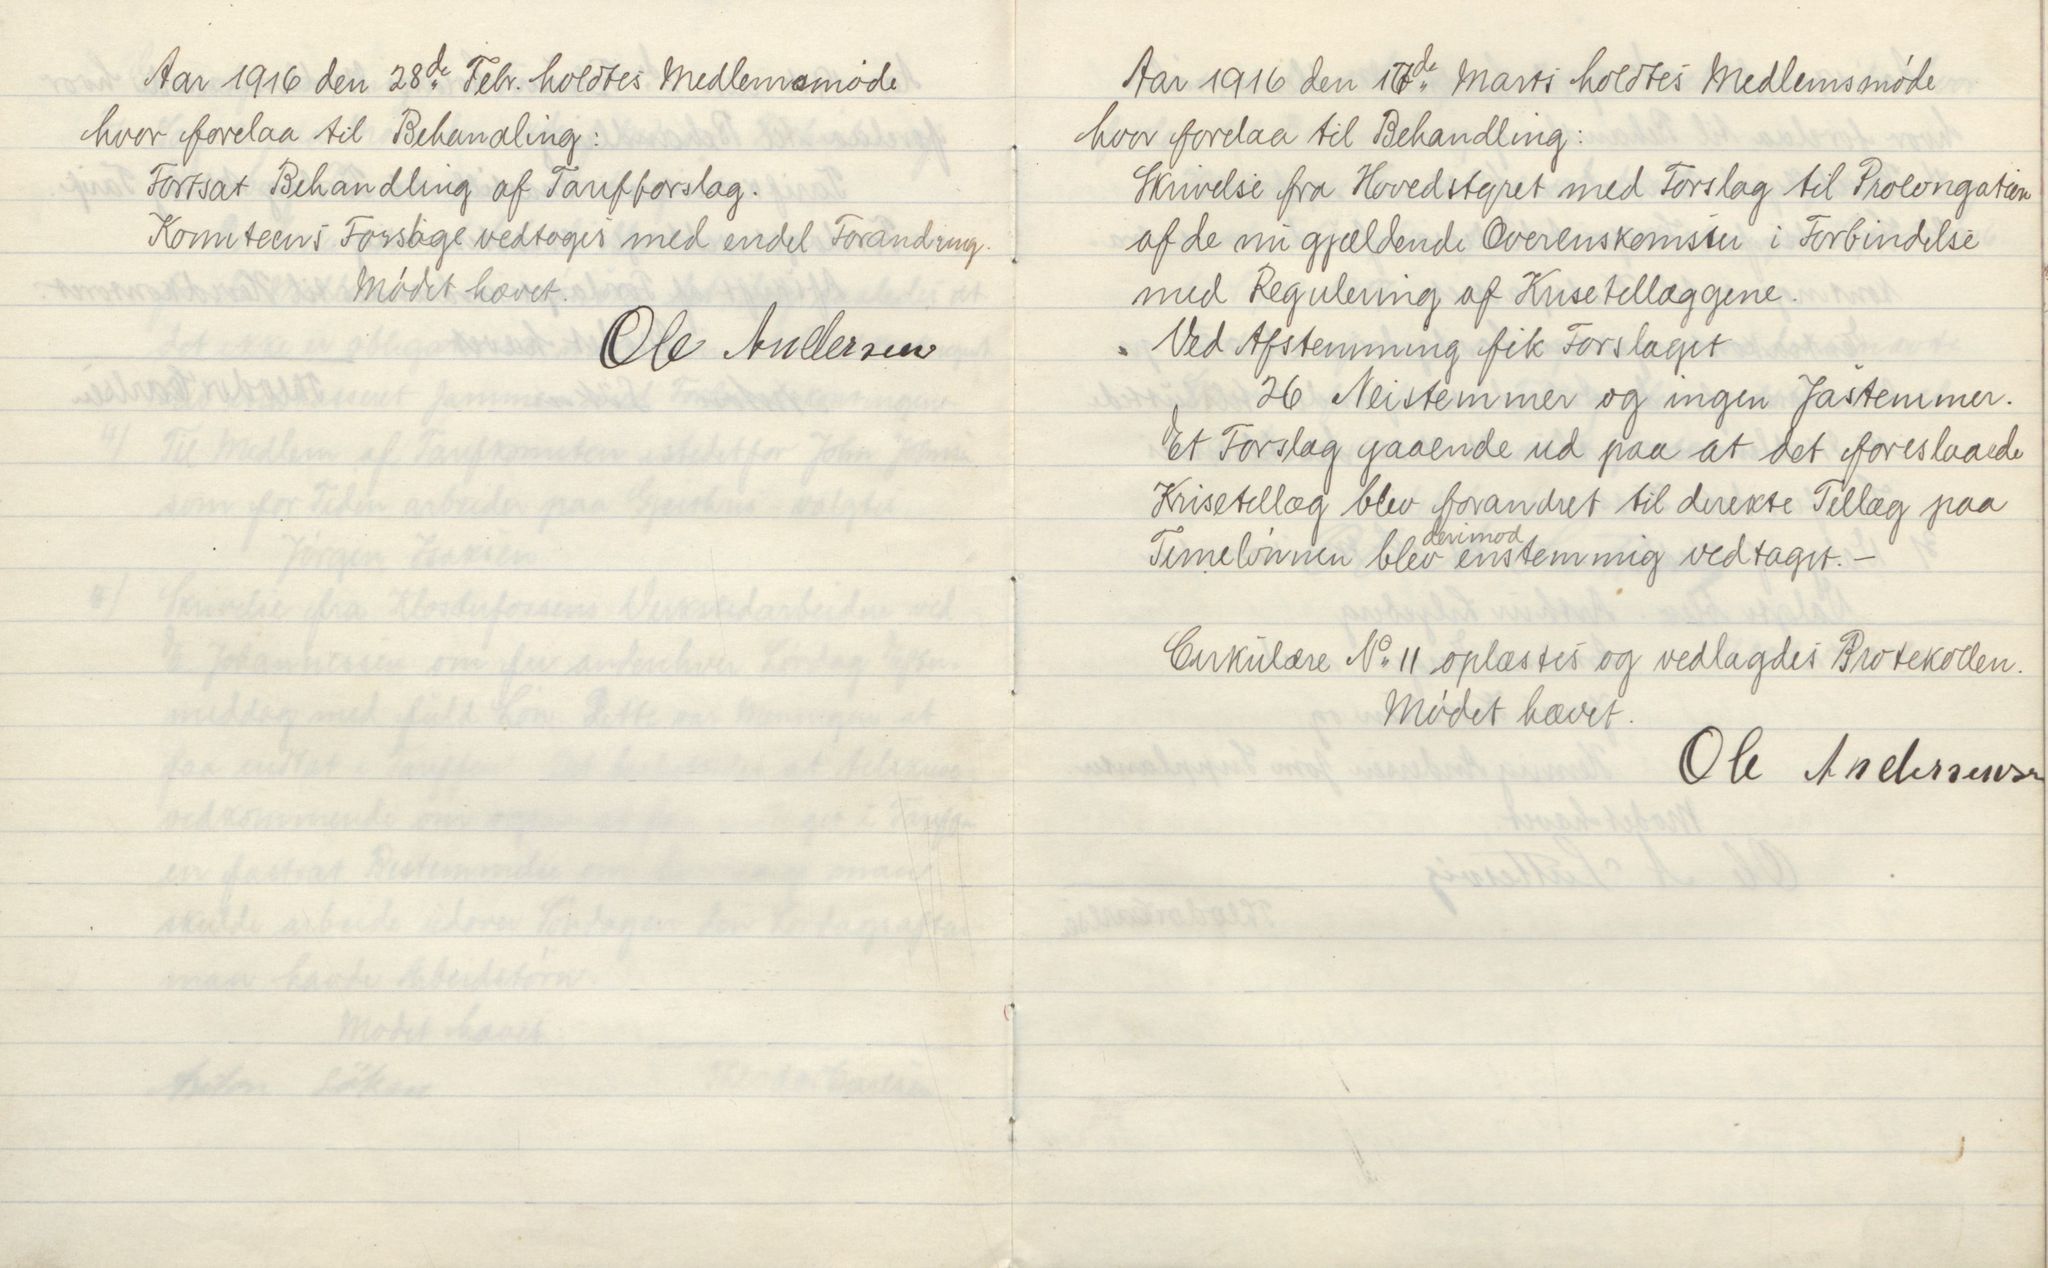 Aar 1916 den 28de Febr. holdtes Medlemsmøde
hvor forelaa til Behandling:
Fortsat Behandling af Tarifforslag.
Komiteens Forslage vedtoges med endel Forandring.
Mødet hævet.
Ole Andersen
Aar 1916 den de Marts holdtes Medlemsmøde
hvor forelaa til Behandling:
Skrivelse fra Hovedstyret med Forslag til Prolongation
af de nu gjældende Overenskomster i Forbindelse
med Regulering af Krisetillæggene.
Ved Afstemming fik Forslaget
26 Neistemmer og ingen Jastemmer.
Et Forslag gaaende ud paa at det foreslaaede
Krisetillæg blev forandret til direkte Tillæg paa
Timelønnen blev derimod enstemmig vedtaget. -
Cirkulære No 11 oplæstes og vedlagdes Protokollen.
Mødet hævet.
Ole Andersen